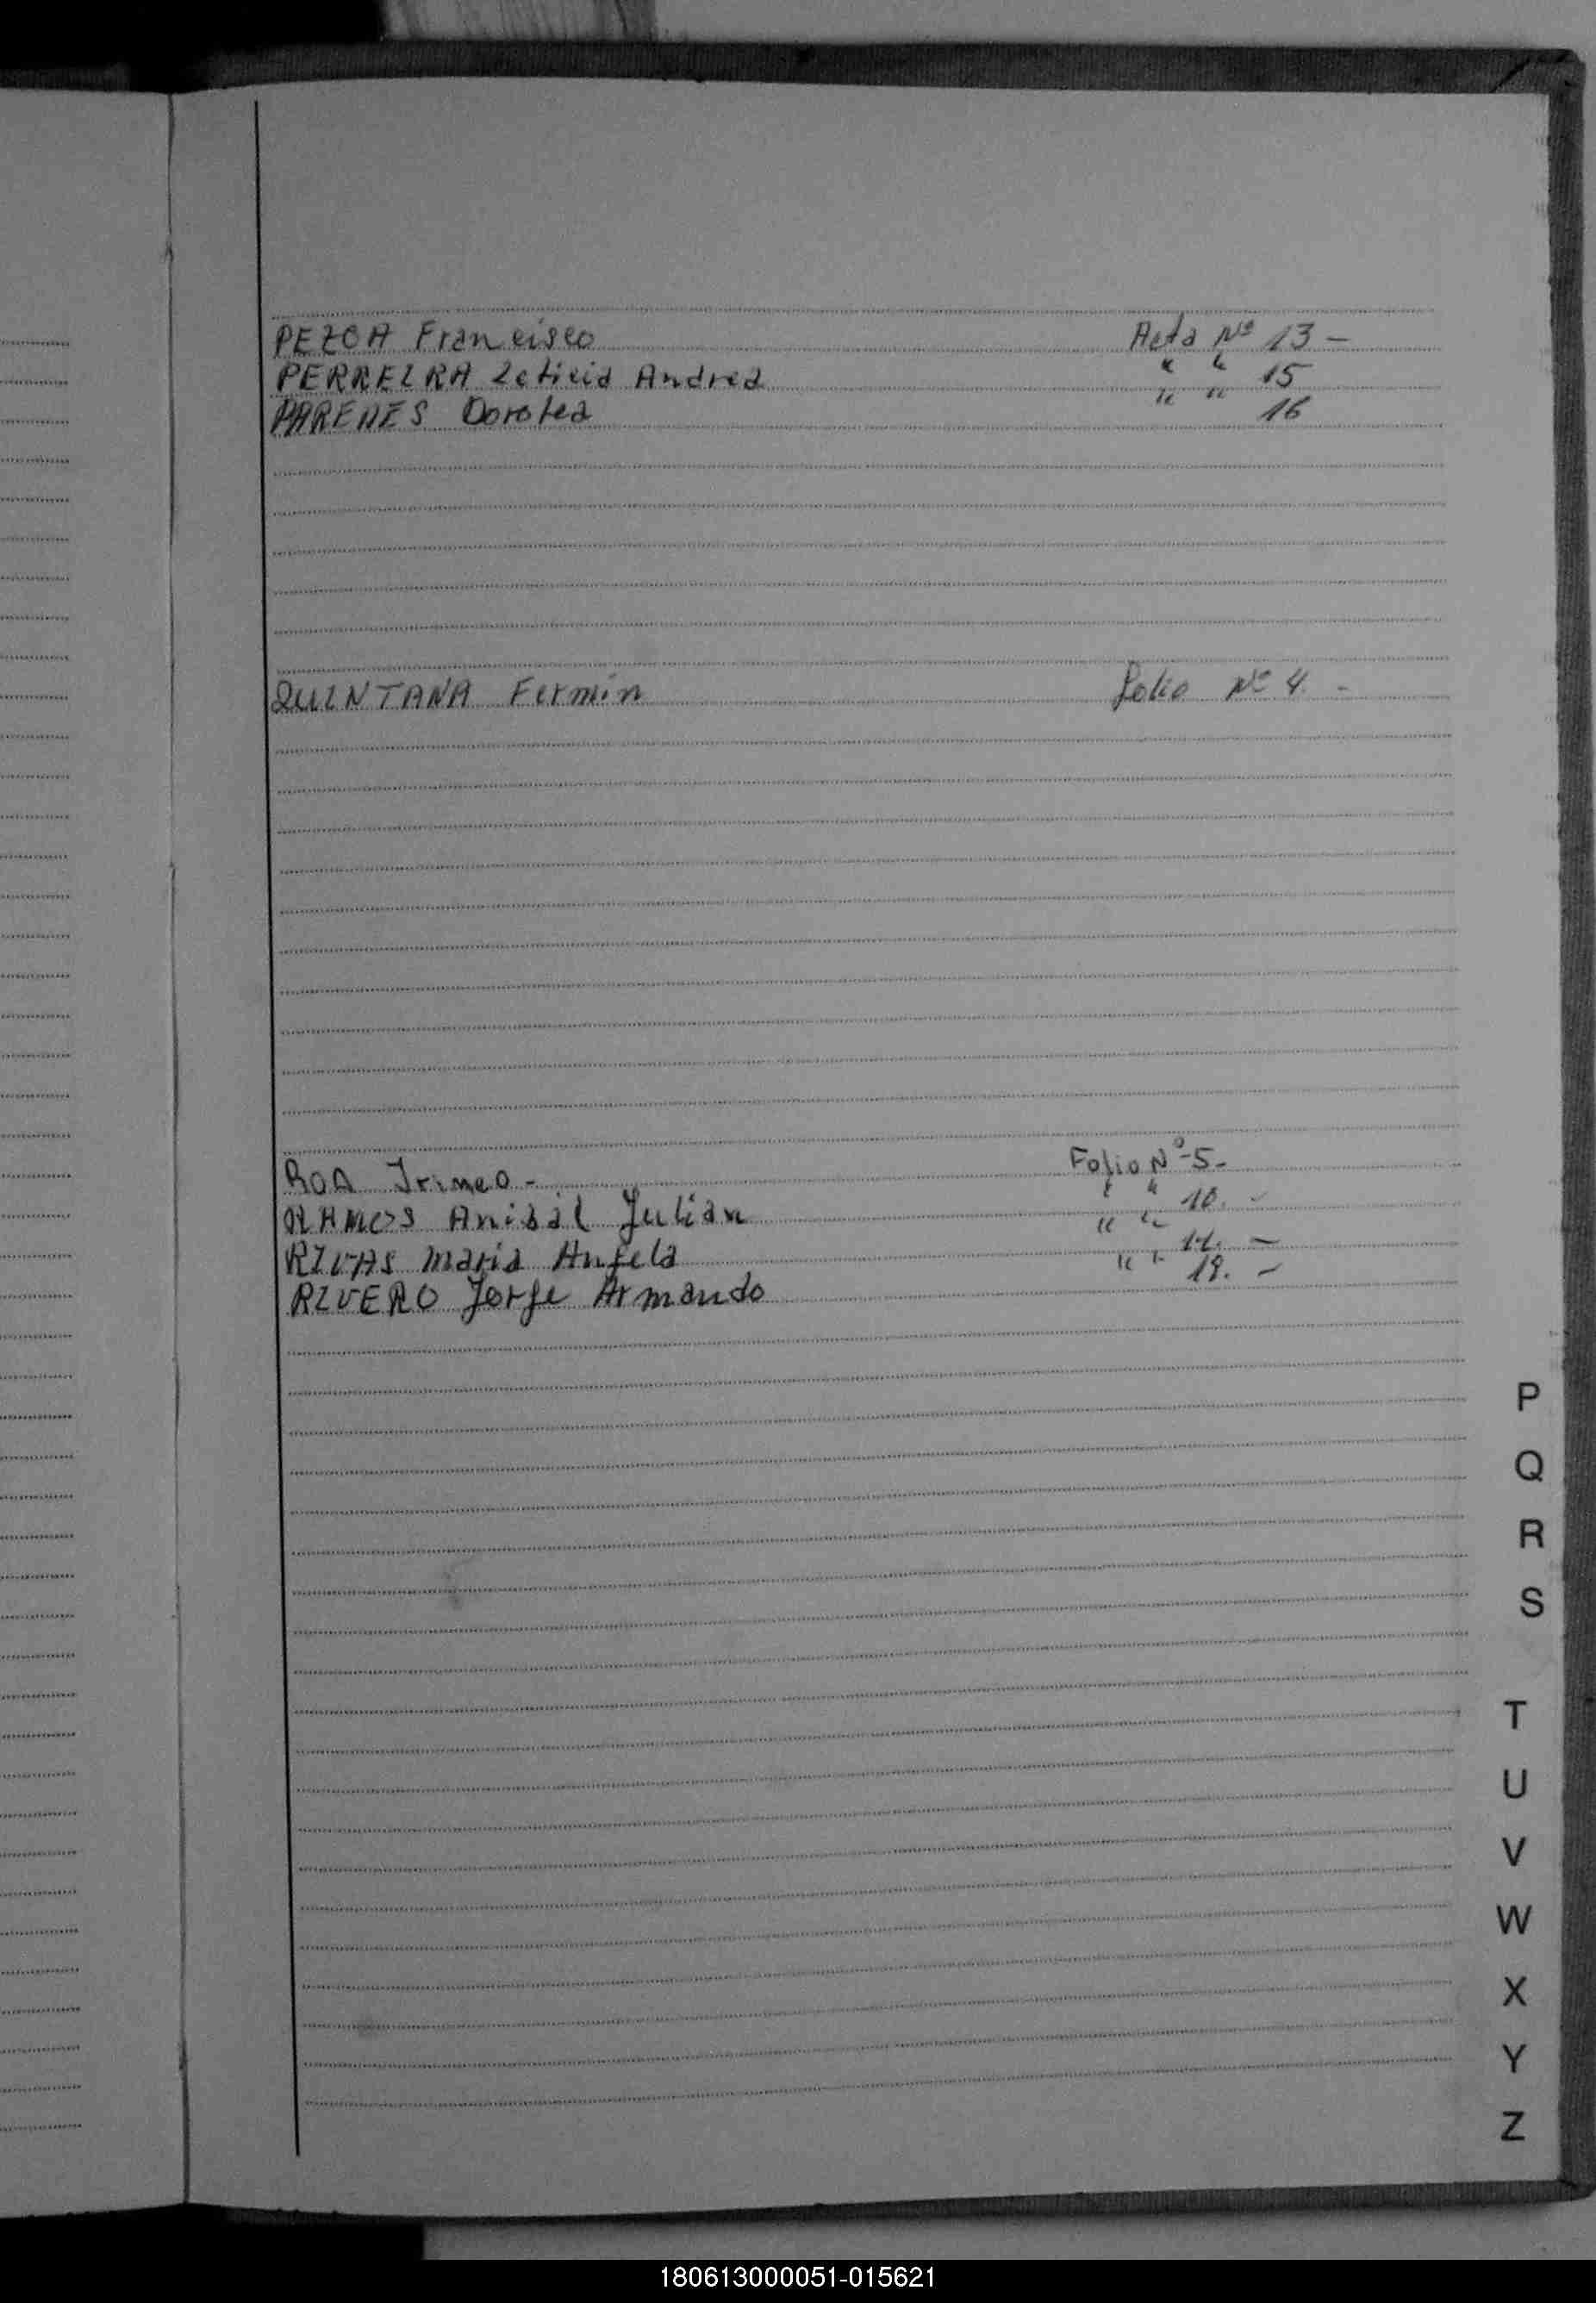 PEZOA Francisco Acta Nº 13 -
PERREIRA Leticia Andrea " " 15
PAREDES Dorotea " " 16
QUINTANA Fermín folio Nº 4. -
ROA Irineo - Folio Nº 5-
RAMOS Anibal Julian " " 10. -
RIVAS Maria Angela " " -
RIVERO Jorge Armando " " 19. -
P
Q
R
S
T
U
V
W
X
Y
Z
180613000051-015621